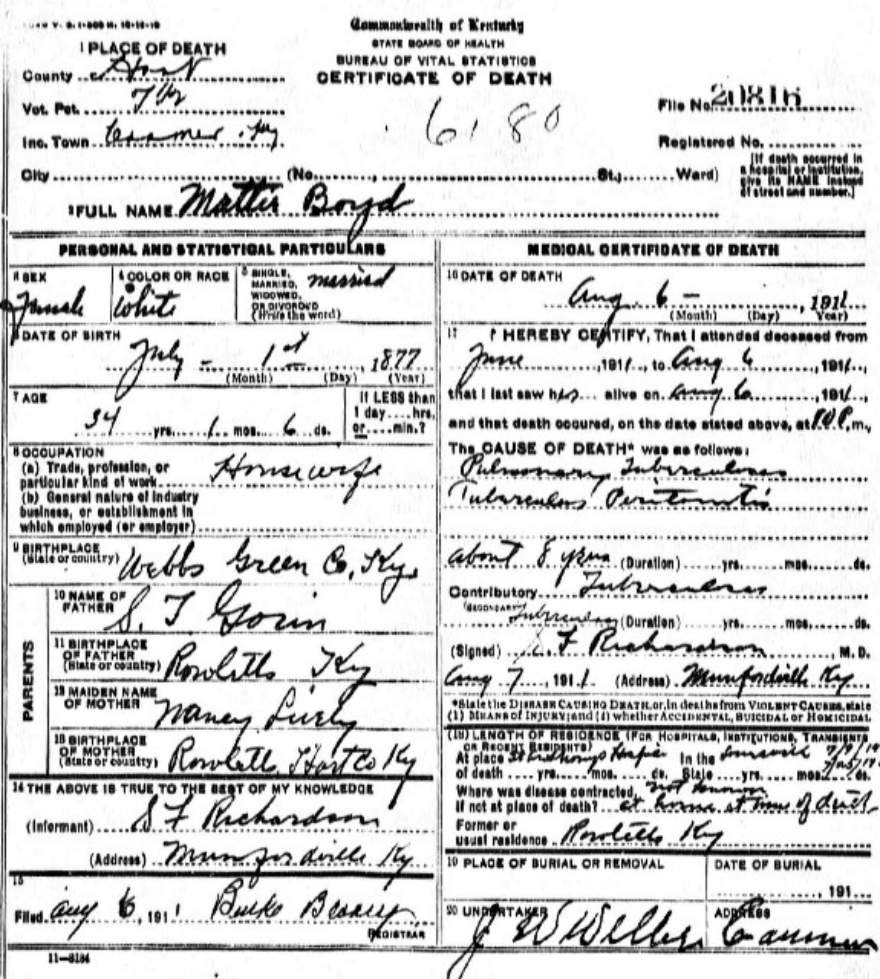 Commonwealth of Kentucky
STATE BOARD OF HEALTH
BUREAU OF VITAL STATISTICS
CERTIFICATE OF DEATH
1 PLACE OF DEATH
County Hart
Vot. Pct.
Inc. Town Ky
6180
File No. 20816
Registered No.
City (No. , St., Ward)
[If death occurred in a hospital or institution, give its NAME instead of street and number.]
2 FULL NAME Mattie Boyd
PERSONAL AND STATISTICAL PARTICULARS
3 SEX
Female
4 COLOR OR RACE
White
5 SINGLE, MARRIED, WIDOWED, OR DIVORCED (Write the word)
married
6 DATE OF BIRTH
July - 1st , 1877
(Month) (Day) (Year)
7 AGE
34 yrs. 1 mos. 6 ds.
If LESS than
1 day....hrs.
or....min.?
8 OCCUPATION
(a) Trade, profession, or
particular kind of work Housewife
(b) General nature of industry
business, or establishment in
which employed (or employer)
9 BIRTHPLACE
(State or country) Webbs Green Co, Ky.
PARENTS
10 NAME OF FATHER
S. T Gorin
11 BIRTHPLACE OF FATHER
(State or country) Rowletts Ky
12 MAIDEN NAME OF MOTHER
Nancy Lively
13 BIRTHPLACE OF MOTHER
(State or country) Rowletts Hart Co Ky
14 THE ABOVE IS TRUE TO THE BEST OF MY KNOWLEDGE
(Informant) S F Richardson
(Address) Munfordville Ky
15
Filed Aug 6, 1911
REGISTRAR
11-3184
MEDICAL CERTIFICATE OF DEATH
16 DATE OF DEATH
Aug. 6 - , 1911
(Month) (Day) Year)
17 I HEREBY CERTIFY, That I attended deceased from
June ,1911, to Aug 6 ,1911,
that I last saw her alive on Aug 6 ,1911,
and that death occured, on the date stated above, at P.m.,
The CAUSE OF DEATH* was as follows:
Pulmonary Tuberculosis
Tuberculous Peritonitis
about 8 years (Duration) yrs. mos. ds.
Contributory Tuberculosis
(SECONDARY) (Duration) yrs. mos. ds.
(Signed) S. F Richardson M. D.
Aug 7, 1911 (Address) Munfordville Ky
*State the DISEASE CAUSING DEATH, or, in deaths from VIOLENT CAUSES, state
(1) MEANS OF INJURY; and (2) whether ACCIDENTAL, SUICIDAL or HOMICIDAL
(18) LENGTH OF RESIDENCE (FOR HOSPITALS, INSTITUTIONS, TRANSIENTS
OR RECENT RESIDENTS)
At place In the
of death yrs. mos. ds. State yrs. mos. ds.
Where was disease contracted, not known
If not at place of death? at home at time of
Former or
usual residence Rowletts Ky
19 PLACE OF BURIAL OR REMOVAL
DATE OF BURIAL
, 191
20 UNDERTAKER
J W
ADDRESS
Canmer